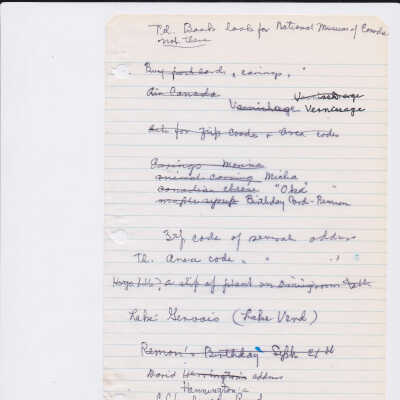 T.d. Bank look for National Museum of Canada
not there
Buy post cards, carvings, "
Air Canada Vernissage
Vernishage Vernissage
Ask for Zip Codes + area codes
Carvings Meune
animal carving Micha
Canadian cheese "Oka"
maple syrup Birthday Card - Remon
Zip code of several address
Tl. Area code " "
a slip of plant on Dining room
Lake Gervais (Lake Verd)
Remon's Birthday Sept. 21st
David Harrington's address
Hannington's